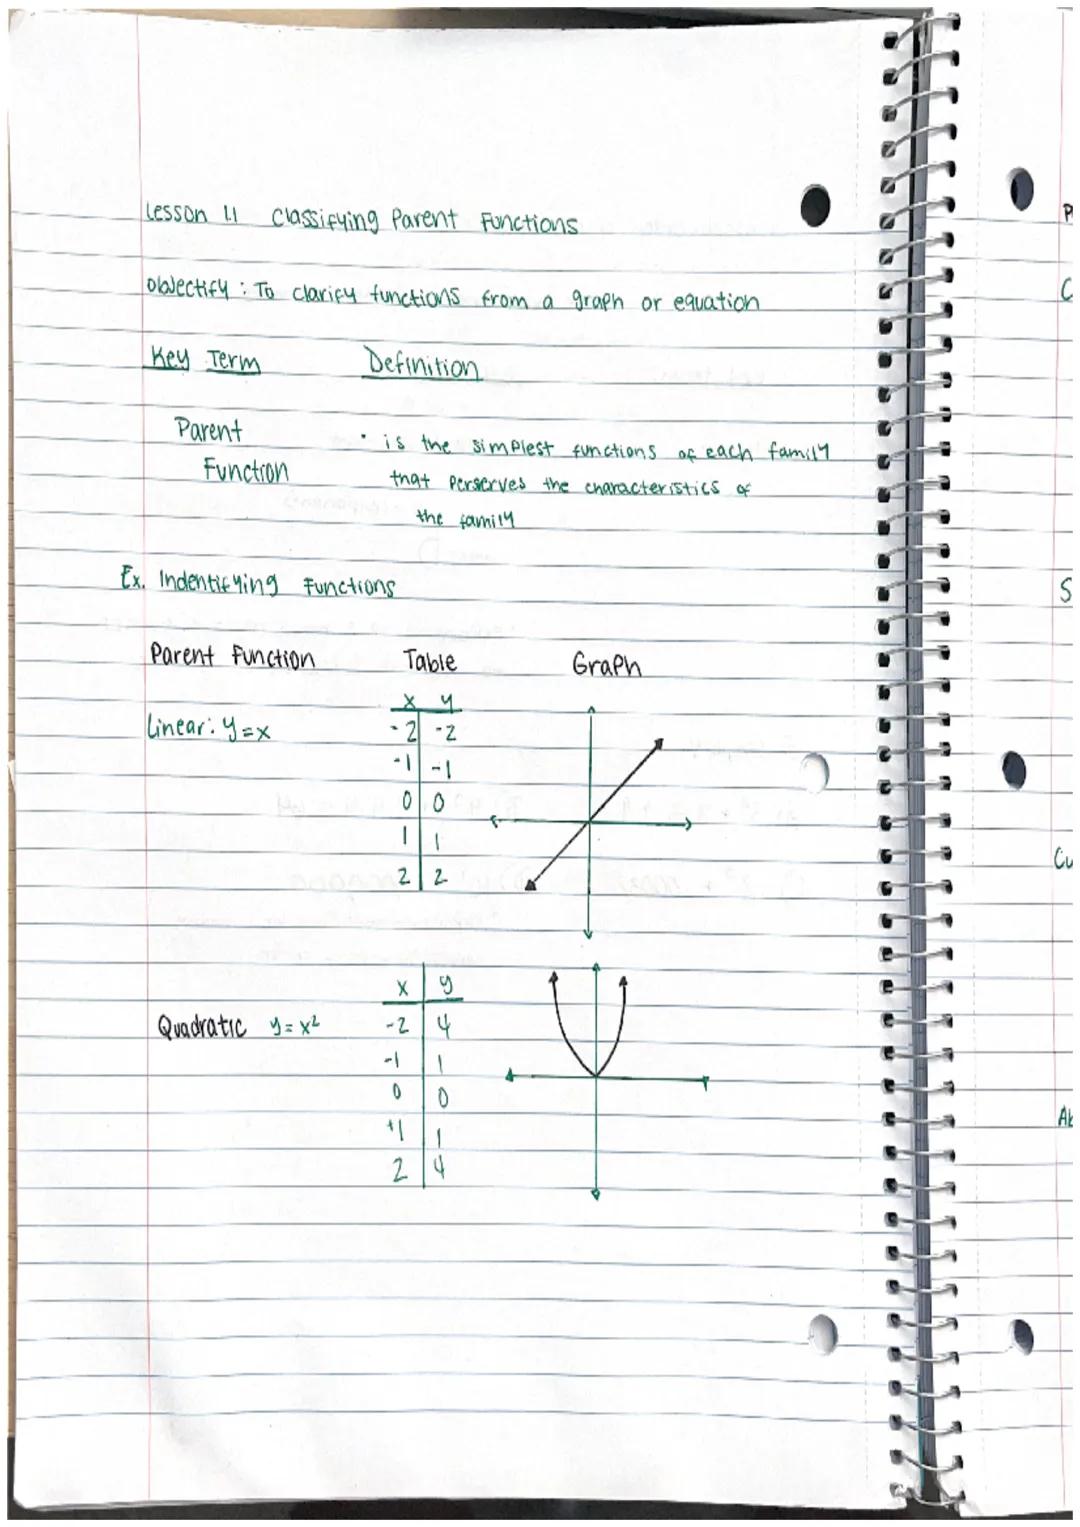 Lesson 1.1 Classifying Parent Functions
objectify : To clarify functions from a graph or equation
Key Term Definition
Parent
Function
• is the simplest functions of each family
that perserves the characteristics of
the family
Ex. Indentifying Functions
Parent Function Table Graph
x y
Linear: y=x -2 -2
-1 -1
0 0
1 1
2 2
x y
Quadratic y=x² -2 4
-1 1
0 0
+1 1
2 4
P
C
S
Cu
Ab